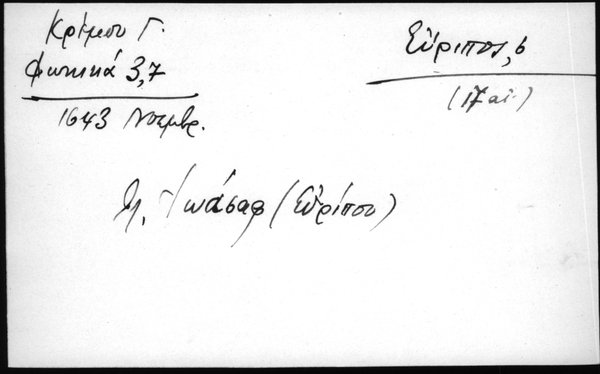 Κρίμου Γ.
Φωκικά 3,7
1643 Νοεμβρ.
Εὔριπος, 6
(17 αἰ.)
Μ. Ἰωάσαφ (Εὐρίπου)